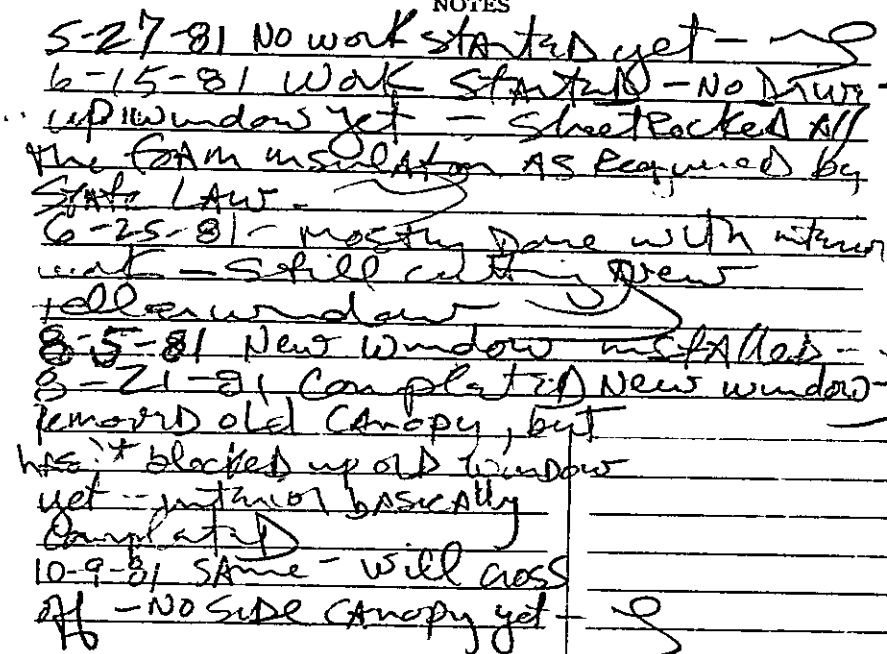 NOTES
5-27-81 No work started yet -
6-15-81 Work Started - No Drive
up window yet - SheetRocked All
the foam insulation AS Required by
State LAW.
6-25-81 - Mostly Done with interior
work - Still cutting New
teller window
8-5-81 New Window installed -
8-21-81 Completed New window -
removed old CAnopy, but
hasn't blocked up old window
yet - interior bASicAlly
Completed
10-9-81 SAme - will cross
off - No Side CAnopy yet -